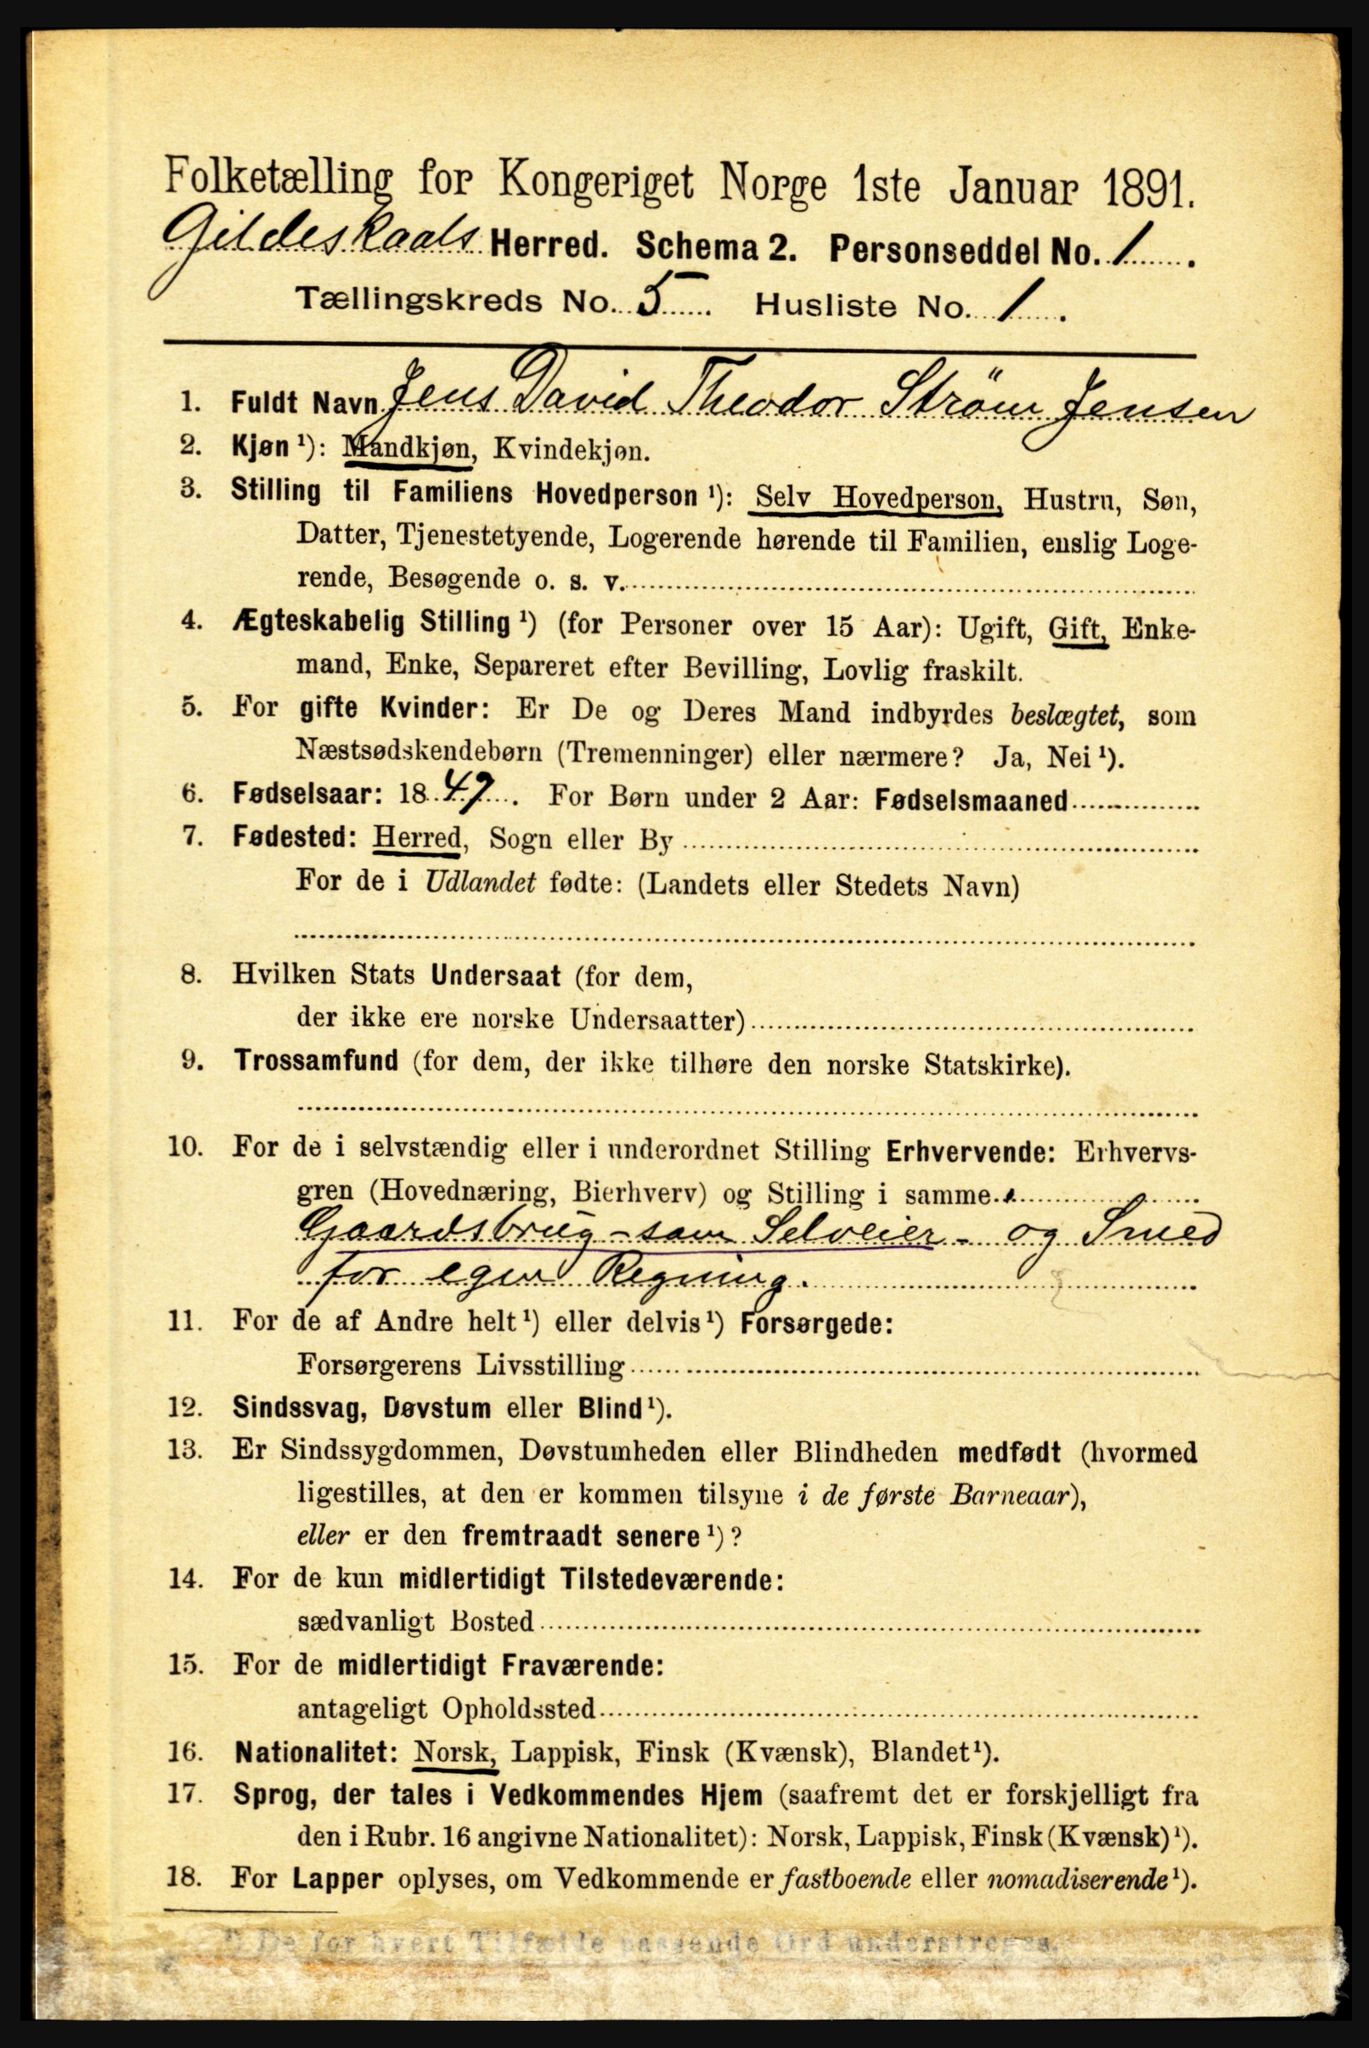 Folketælling for Kongeriget Norge 1ste Januar 1891.
Gildeskaals Herred. Schema 2. Personseddel No. 1.
Tællingskreds No. 5. Husliste No. 1.
1. Fuldt Navn Jens David Theodor Strøm Jensen
2. Kjøn ¹): Mandkjøn, Kvindekjøn.
3. Stilling til Familiens Hovedperson ¹): Selv Hovedperson, Hustru, Søn,
Datter, Tjenestetyende, Logerende hørende til Familien, enslig Loge-
rende, Besøgende o. s. v.
4. Ægteskabelig Stilling ¹) (for Personer over 15 Aar): Ugift, Gift, Enke-
mand, Enke, Separeret efter Bevilling, Lovlig fraskilt.
5. For gifte Kvinder: Er De og Deres Mand indbyrdes beslægtet, som
Næstsødskendebørn (Tremenninger) eller nærmere? Ja, Nei ¹).
6. Fødselsaar: 1847. For Børn under 2 Aar: Fødselsmaaned
7. Fødested: Herred, Sogn eller By
For de i Udlandet fødte: (Landets eller Stedets Navn)
8. Hvilken Stats Undersaat (for dem,
der ikke ere norske Undersaatter)
9. Trossamfund (for dem, der ikke tilhøre den norske Statskirke).
10. For de i selvstændig eller i underordnet Stilling Erhvervende: Erhvervs-
gren (Hovednæring, Bierhverv) og Stilling i samme.
Gaardsbrug - som Selveier - og Smed
for egen Regning.
11. For de af Andre helt ¹) eller delvis ¹) Forsørgede:
Forsørgerens Livsstilling
12. Sindssvag, Døvstum eller Blind ¹).
13. Er Sindssygdommen, Døvstumheden eller Blindheden medfødt (hvormed
ligestilles, at den er kommen tilsyne i de første Barneaar),
eller er den fremtraadt senere ¹)?
14. For de kun midlertidigt Tilstedeværende:
sædvanligt Bosted
15. For de midlertidigt Fraværende:
antageligt Opholdssted
16. Nationalitet: Norsk, Lappisk, Finsk (Kvænsk), Blandet ¹).
17. Sprog, der tales i Vedkommendes Hjem (saafremt det er forskjelligt fra
den i Rubr. 16 angivne Nationalitet): Norsk, Lappisk, Finsk (Kvænsk) ¹).
18. For Lapper oplyses, om Vedkommende er fastboende eller nomadiserende ¹).
¹) De for hvert Tilfælde passende Ord understreges.